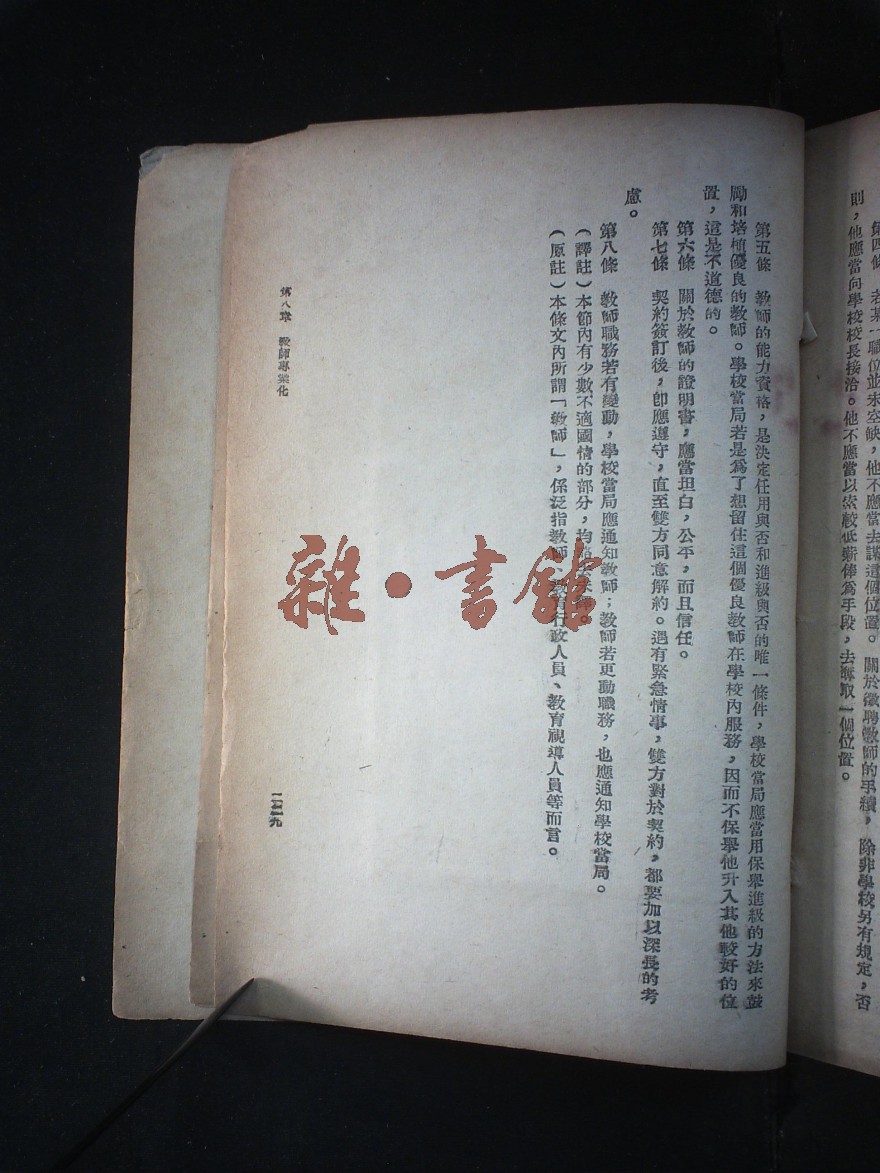 第四條　若某一職位並未空缺，他不應當去謀這個位置。關於徵聘教師的手續，除非學校另有規定，否
則，他應當向學校校長接洽。他不應當以索較低薪俸爲手段，去奪取一個位置。
第五條　教師的能力資格，是決定任用與否和進級與否的唯一條件，學校當局應當用保舉進級的方法來鼓
勵和培植優良的教師。學校當局若是爲了想留住這個優良教師在學校內服務，因而不保舉他升入其他較好的位
置，這是不道德的。
第六條　關於教師的證明書，應當坦白，公平，而且信任。
第七條　契約簽訂後，卽應遵守，直至雙方同意解約。遇有緊急情事，雙方對於契約，都要加以深長的考
慮。
第八條　教師職務若有變動，學校當局應通知教師；教師若更動職務，也應通知學校當局。
（譯註）本節內有少數不適國情的部分，均
（原註）本條文內所謂「教師」，係泛指教師、教育行政人員、教育視導人員等而言。
第八章　教師專業化
二二九
雜·書館